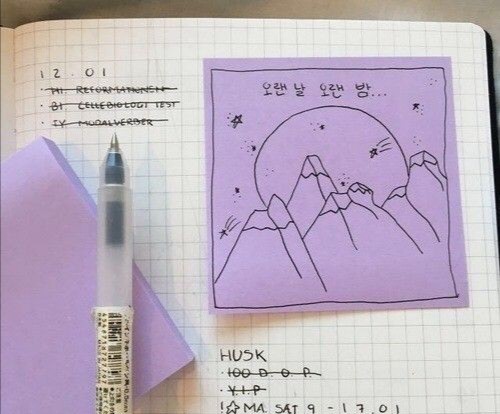 12.01
· HI REFORMATIONEN
· BI CELLEBIOLOGI TEST
· TY MODALVERBER
오랜 날 오랜 밤...
HUSK
· 100 D.O.P.
· V.I.P
!☆ MA SAT 9 - 17.01